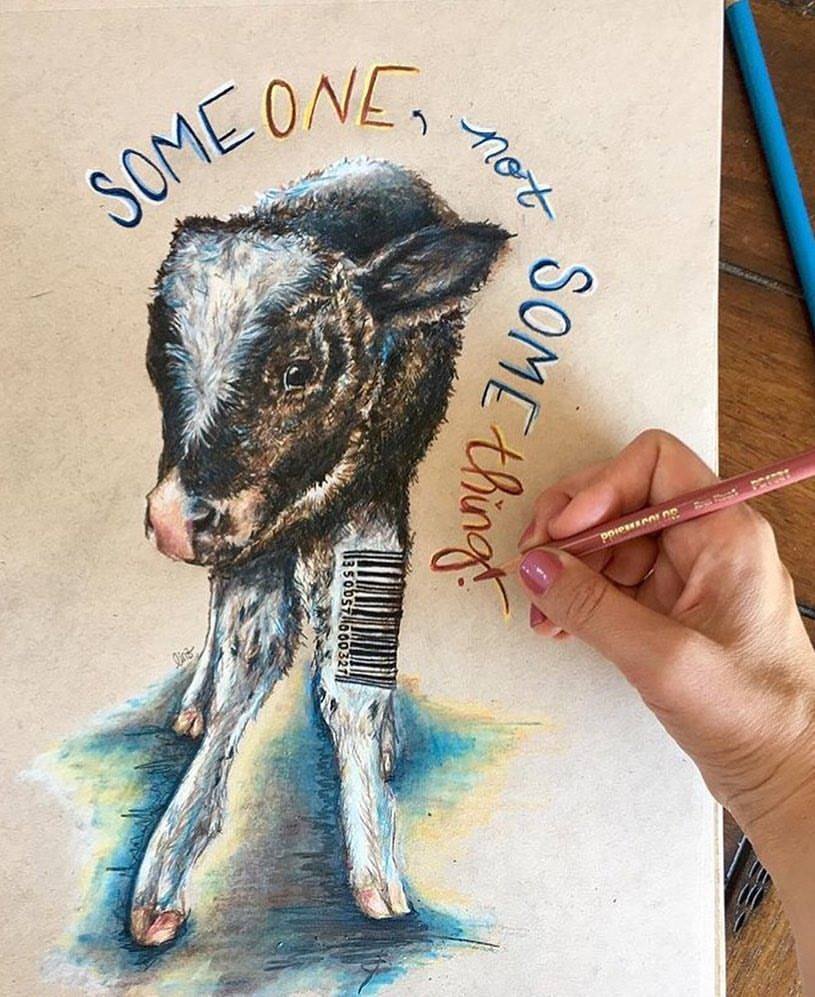 SOMEONE, not
SOMEthing!
350057000327
PRISMACOLOR